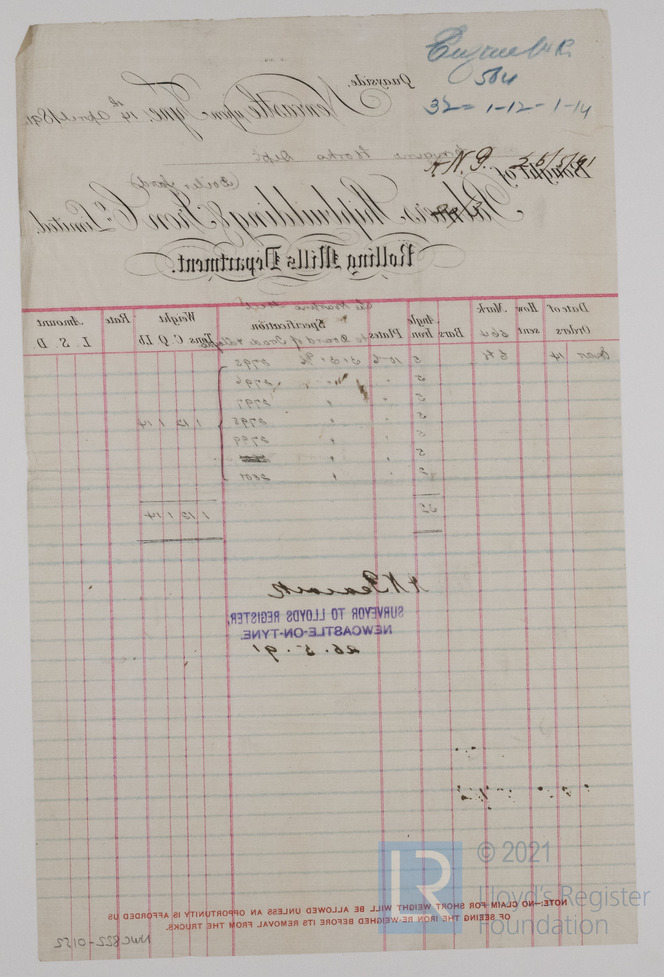 Engine W.R.
564
32 = 1-12-1-14
Quayside,
Newcastle upon Tyne, 14th April 1891
Engine Works Dept
H.N.P. 25/5/91
(Boiler front)
Bought of
Palmers Shipbuilding & Iron Co. Limited
Rolling Mills Department.
Date of Orders
How sent
Mark
564
Bars
Angle Iron
Plates
Specification
Weight
Tons C. Q. Lb
Rate
Amount
L. S. D.
14
5 2795
5 " 2796
5 " 2797
5 " 2798 1 12 1 14
5 " 2799
5
5 " 2801
32 1 12 1 14
SURVEYOR TO LLOYDS REGISTER,
NEWCASTLE-ON-TYNE.
25.5.91
NOTE:—NO CLAIM FOR SHORT WEIGHT WILL BE ALLOWED UNLESS AN OPPORTUNITY IS AFFORDED US
OF SEEING THE IRON RE-WEIGHED BEFORE ITS REMOVAL FROM THE TRUCKS.
NWC822-0152
LR
© 2021
Lloyd's Register
Foundation